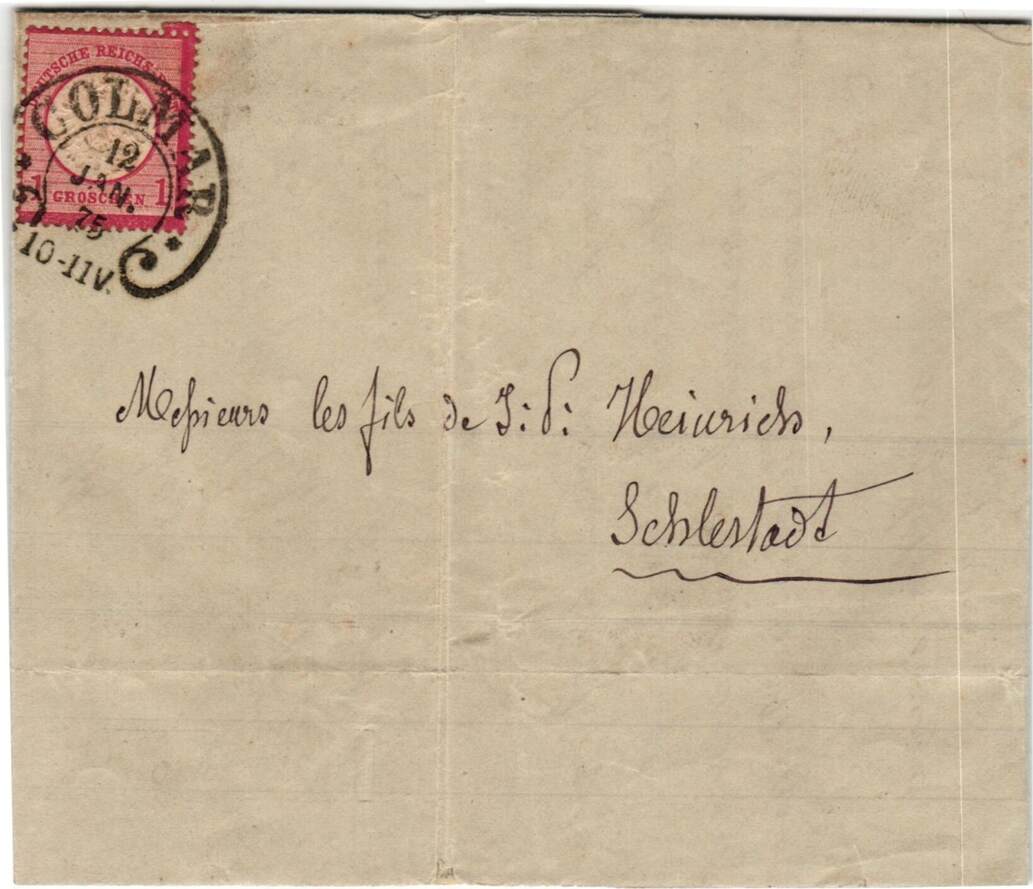 DEUTSCHE REICHS-
COLMAR
12
JAN.
75
1 GROSCHEN 1
10-11V.
Messieurs les fils de J: P: Heinrich,
Schlestadt